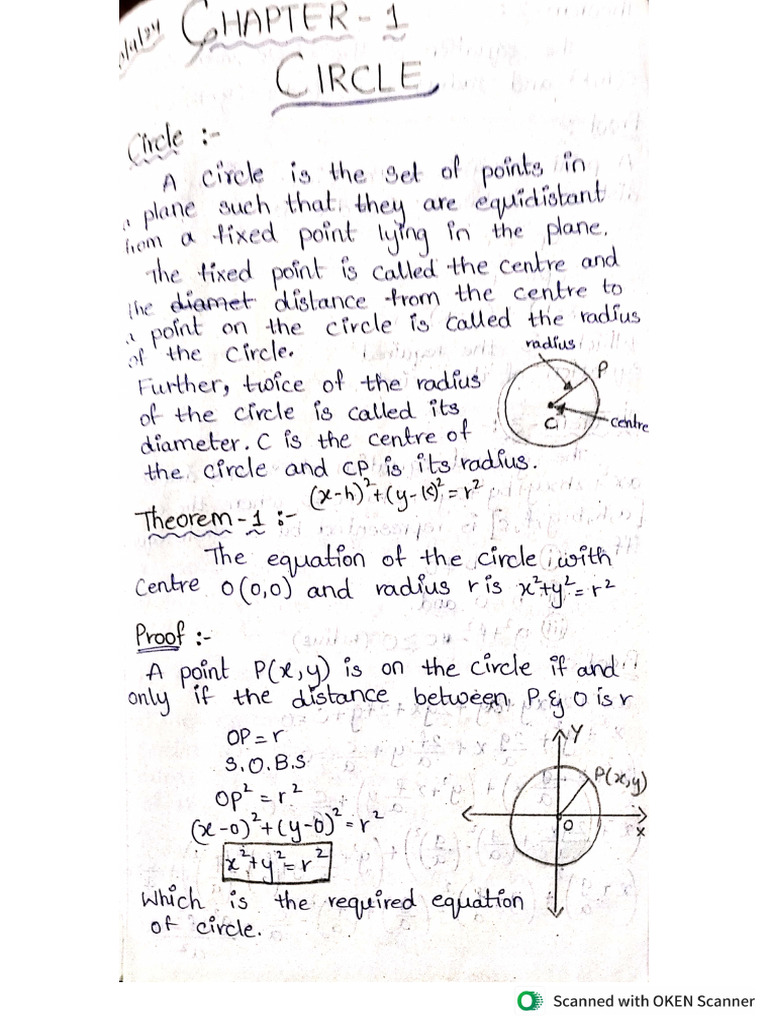 CHAPTER - 1
CIRCLE
Circle :-
A circle is the set of points in
a plane such that they are equidistant
from a fixed point lying in the plane.
The fixed point is called the centre and
the diamet distance from the centre to
a point on the circle is called the radius
of the circle.
radius
P
C
centre
Further, twice of the radius
of the circle is called its
diameter. C is the centre of
the circle and CP is its radius.
(x-h)²+(y-k)²=r²
Theorem-1 :-
The equation of the circle with
centre O(0,0) and radius r is x²+y²=r²
Proof :-
A point P(x,y) is on the circle if and
only if the distance between P & O is r
OP=r
S.O.B.S
OP²=r²
(x-0)²+(y-0)²=r²
x²+y²=r²
Y
P(x,y)
O
x
Which is the required equation
of circle.
Scanned with OKEN Scanner